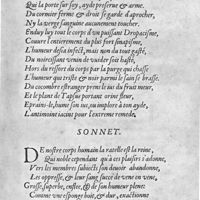 Qui la porte sur soy, ayde preserue & arme.
Du cormier ferme & droit se garde d'aprocher,
Ny la verge sanguine aucunement toucher.
Enduy luy tout le corps d'un puissant Dropacisme,
Couure l'entierement du plus fort sinapisme,
L'humeur desia infect, mais non du tout gasté,
Du noircissant venin de vuider soit hasté,
Hors du ressort du corps par la purge qui chasse
L'humeur qui triste & noir parmi le sain se brasse.
Du cocombre estranger prens le ius du fruit meur,
Et le plane de Tapsus portant orine fleur,
Eprains-le, hume son suc, ou implore à ton ayde,
L'antimoine iacinc pour l'extreme remede.
SONNET.
DE nostre corps humain la ratelle est la roine,
Qui noble cependant qu'à ces plaisirs s'adonne,
Vers les membres subiects son deuoir abandonne,
Les oppresse, & leur sang succé de vene en vene,
Grosse, superbe, enflee, & de son humeur plene:
Comme une esponge boit, & dur, exactionne